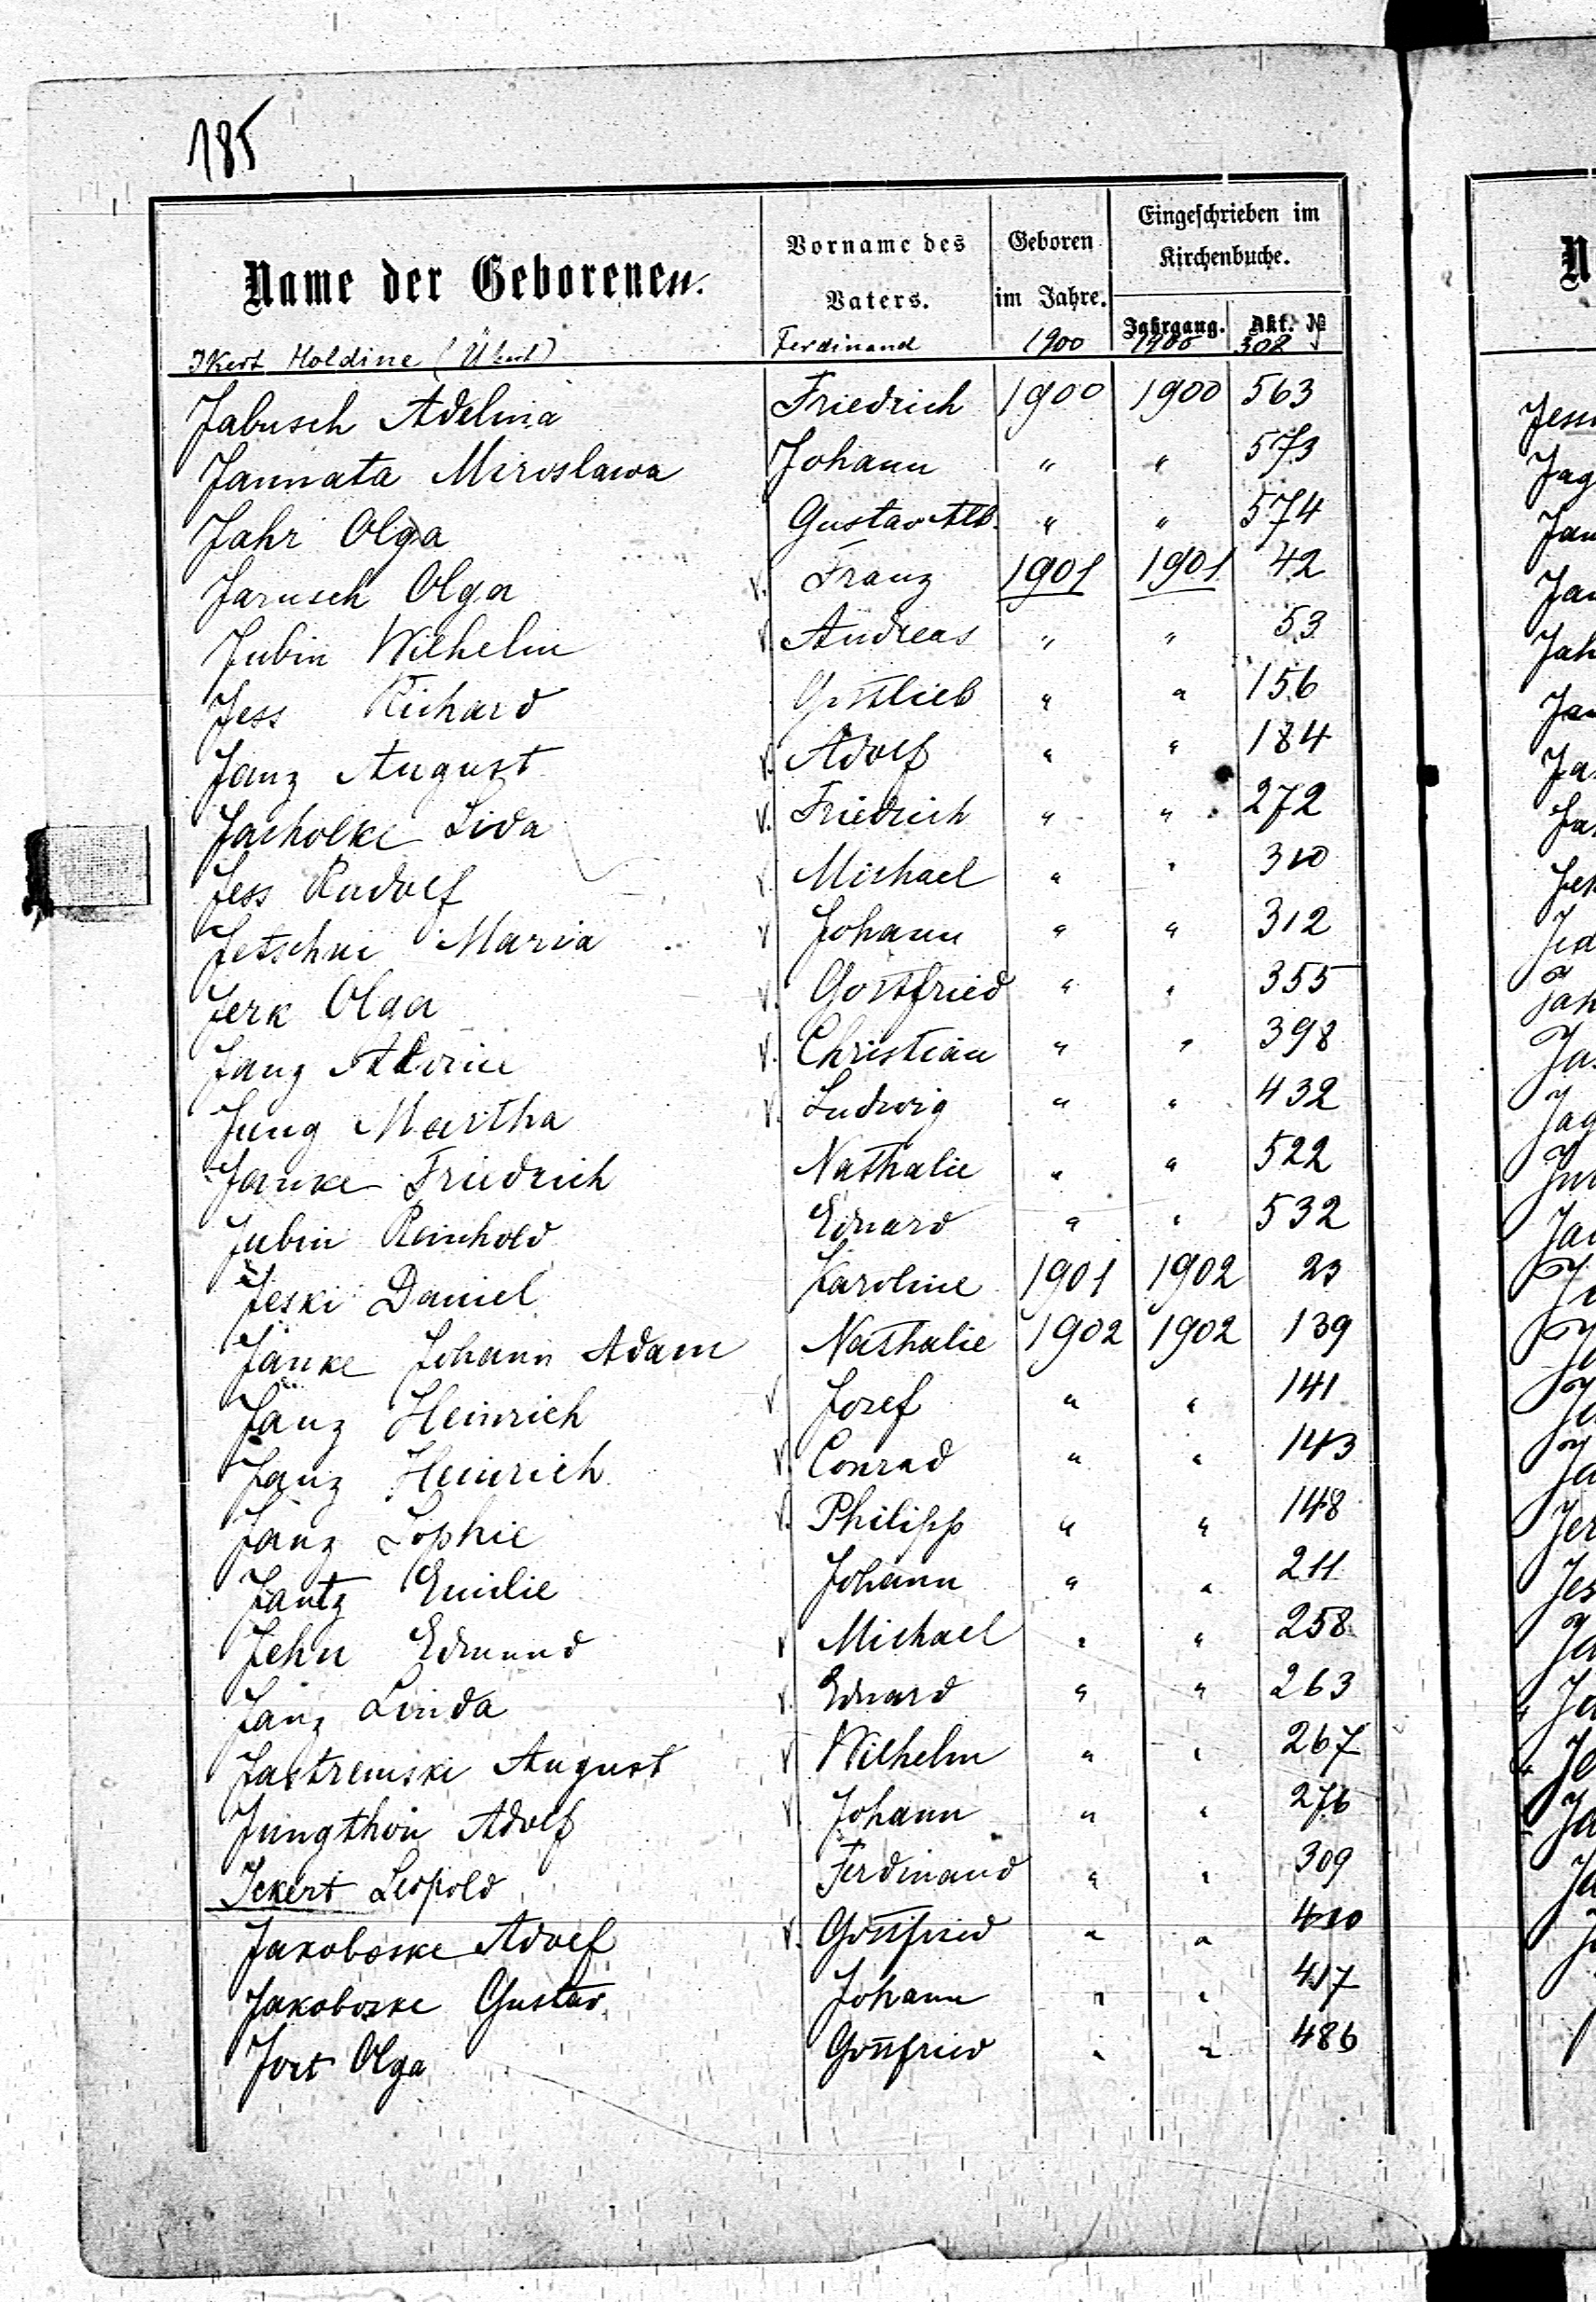 185
Name der Geborenen. Vorname des Vaters. Geboren im Jahre. Eingeschrieben im Kirchenbuche. Jahrgang. Akt. №
Ikert Holdine (Ükert) Ferdinand 1900 1900 308
Jabusch Adelina Friedrich 1900 1900 563
Jannata Miroslawa Johann " " 573
Jahr Olga Gustav Alb. " " 574
Jarusch Olga v. Franz 1901 1901 42
Jubin Wilhelm v. Andreas " " 53
Jess Richard Gottlieb " " 156
Janz August v. Adolf " " 184
Jacholke Lida v. Friedrich " " 272
Jess Rudolf v. Michael " " 310
Jetschni Maria v Johann " " 312
Jerk Olga v. Gottfried " " 355
Janz v. Christian " " 398
Jung Martha v. Ludwig " " 432
Janke Friedrich Nathalie " " 522
Jubin Reinhold Eduard " " 532
Jeski Daniel Karoline 1901 1902 23
Janke Johann Adam Nathalie 1902 1902 139
Janz Heinrich v Josef " " 141
Janz Heinrich v. Conrad " " 143
Janz Sophie v. Philipp " " 148
Jantz Emilie Johann " " 211
Jehn Edmund v Michael " " 258
Janz Linda v. Eduard " " 263
Jastremski August v Wilhelm " " 267
Jungthon Adolf v Johann " " 276
Ickert Leopold Ferdinand " " 309
Jakoboske Adolf v. Gottfried " " 410
Jakoboske Gustav Johann " " 417
Jort Olga Gottfried " " 486